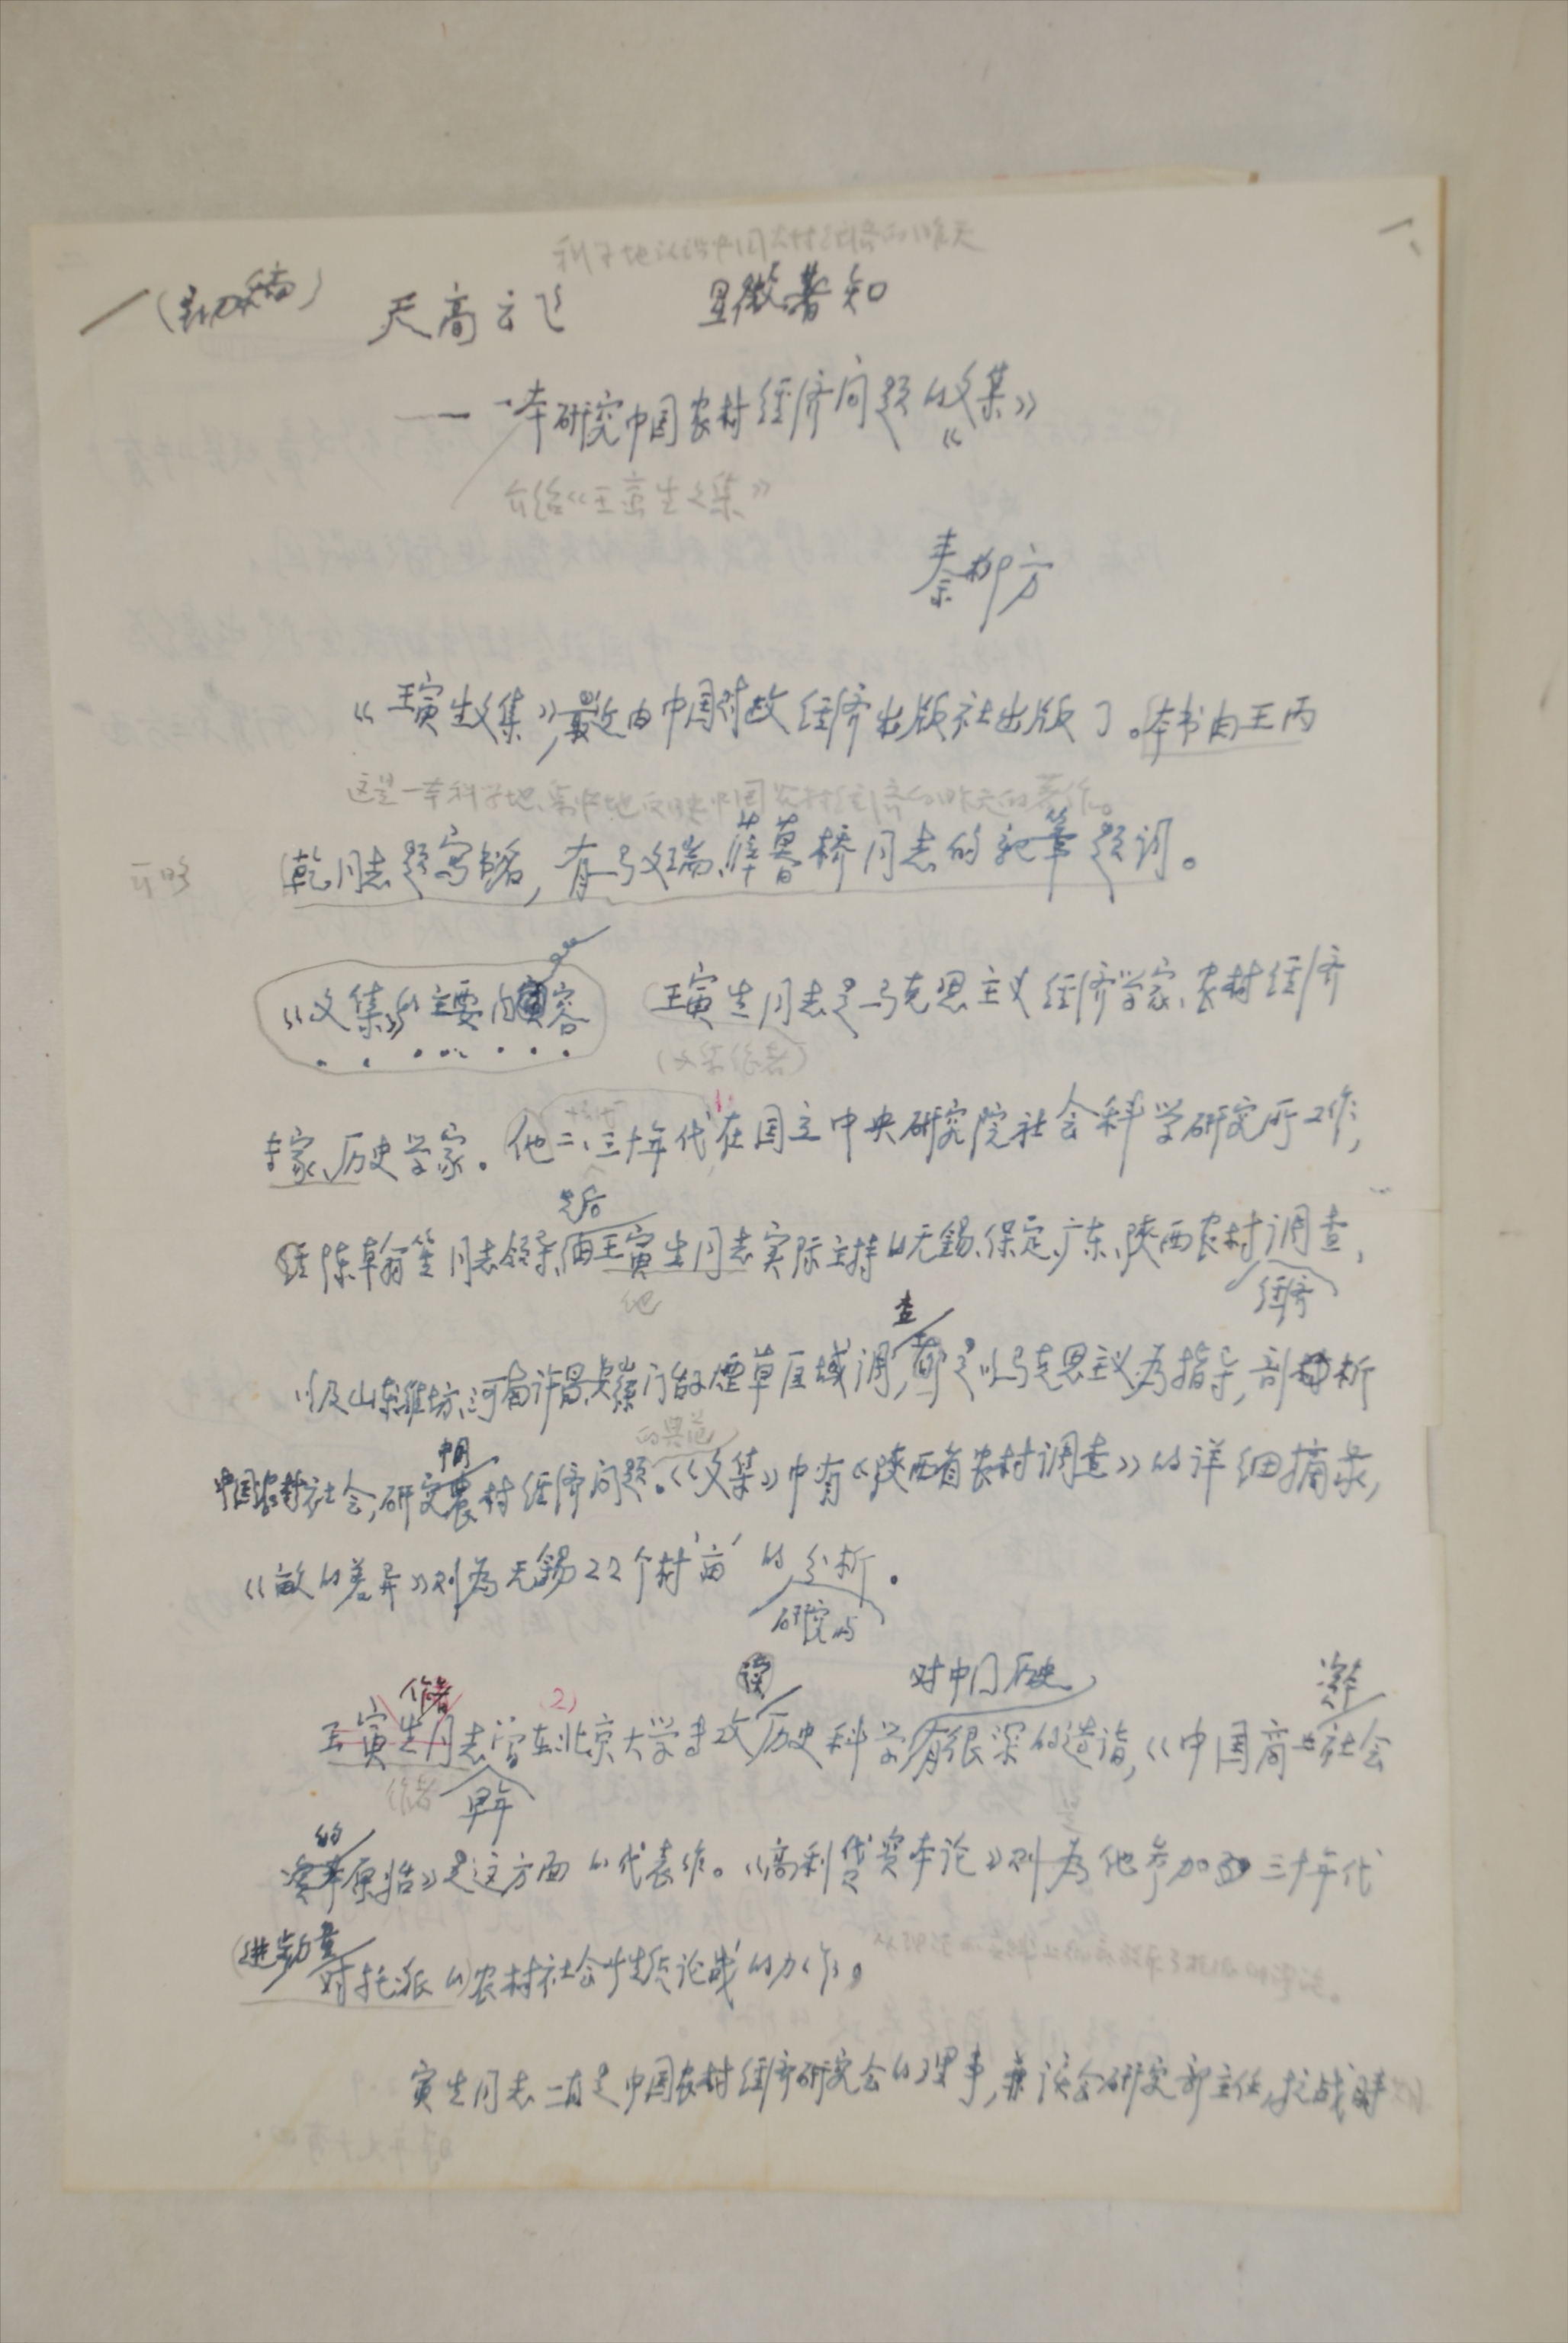 科学地认识中国农村经济的昨天
(初稿) 天高云飞 显微著知
一、
——一本研究中国农村经济问题的《文集》
介绍《王寅生文集》
秦柳方
《王寅生文集》,最近由中国财政经济出版社出版了。本书由王丙
这是一本科学地、地反映中国农村经济的昨天的著作。
乾同志题写书名,有马文瑞、薛暮桥同志的亲笔题词。
可略
《文集》的主要内容 王寅生同志是马克思主义经济学家、农村经济
(文集作者)
专家、历史学家。他二、三十年代在国立中央研究院社会科学研究所工作,
先后
经陈翰笙同志领导,由王寅生同志实际主持的无锡、保定、广东、陕西农村调查,
他 经济
查
以及山东潍坊、河南许昌烟草区域调,都是以马克思主义为指导,剖析
的典范
中国
中国农村社会,研究农村经济问题。《文集》中有《陕西省农村调查》的详细摘录,
《亩的差异》则为无锡22个村‘亩’的分析。
研究与
作者 (2) 读 对中国历史 资本
王寅生同志曾在北京大学专攻历史科学有很深的造诣,《中国商业社会
作者 早年
的
原始》是这方面的代表作。《高利贷资本论》则为他参加了三十年代
进步力量
对托派的农村社会性质论战的力作。
寅生同志一直是中国农村经济研究会的理事,兼该会研究部主任,抗战时